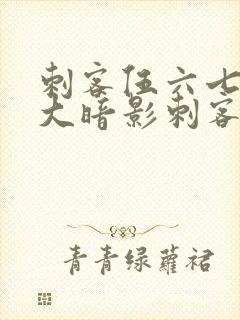 刺客伍六七
大暗影刺客
青青绿萝裙